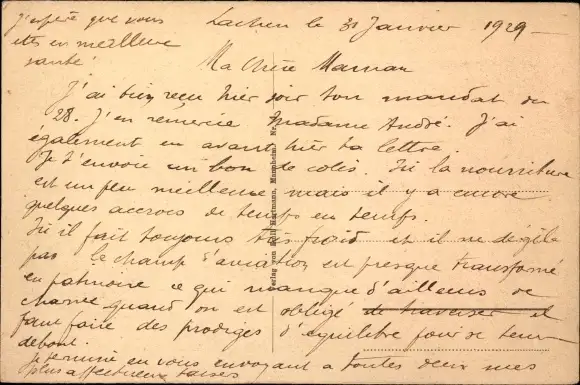 j'espère que vous
êtes en meilleure
santé
Lachen le 31 Janvier 1929
Ma Chère Maman
J'ai bien reçu hier soir ton mandat du
28. J'en remercie Madame André. J'ai
également eu avant hier ta lettre.
Je t'envoie un bon de colis. Ici la nourriture
est un peu meilleure mais il y a encore
quelques accrocs de temps en temps.
Ici il fait toujours très froid et il ne dégèle
pas le champ d'aviation est presque transformé
en patinoire ce qui manque d'ailleurs de
charme quand on est obligé de traverser il
faut faire des prodiges d'équilibre pour se tenir
debout.
Je termine en vous envoyant à toutes deux mes
plus affectueux baisers
Verlag von Hartmann, Mannheim. Nr.